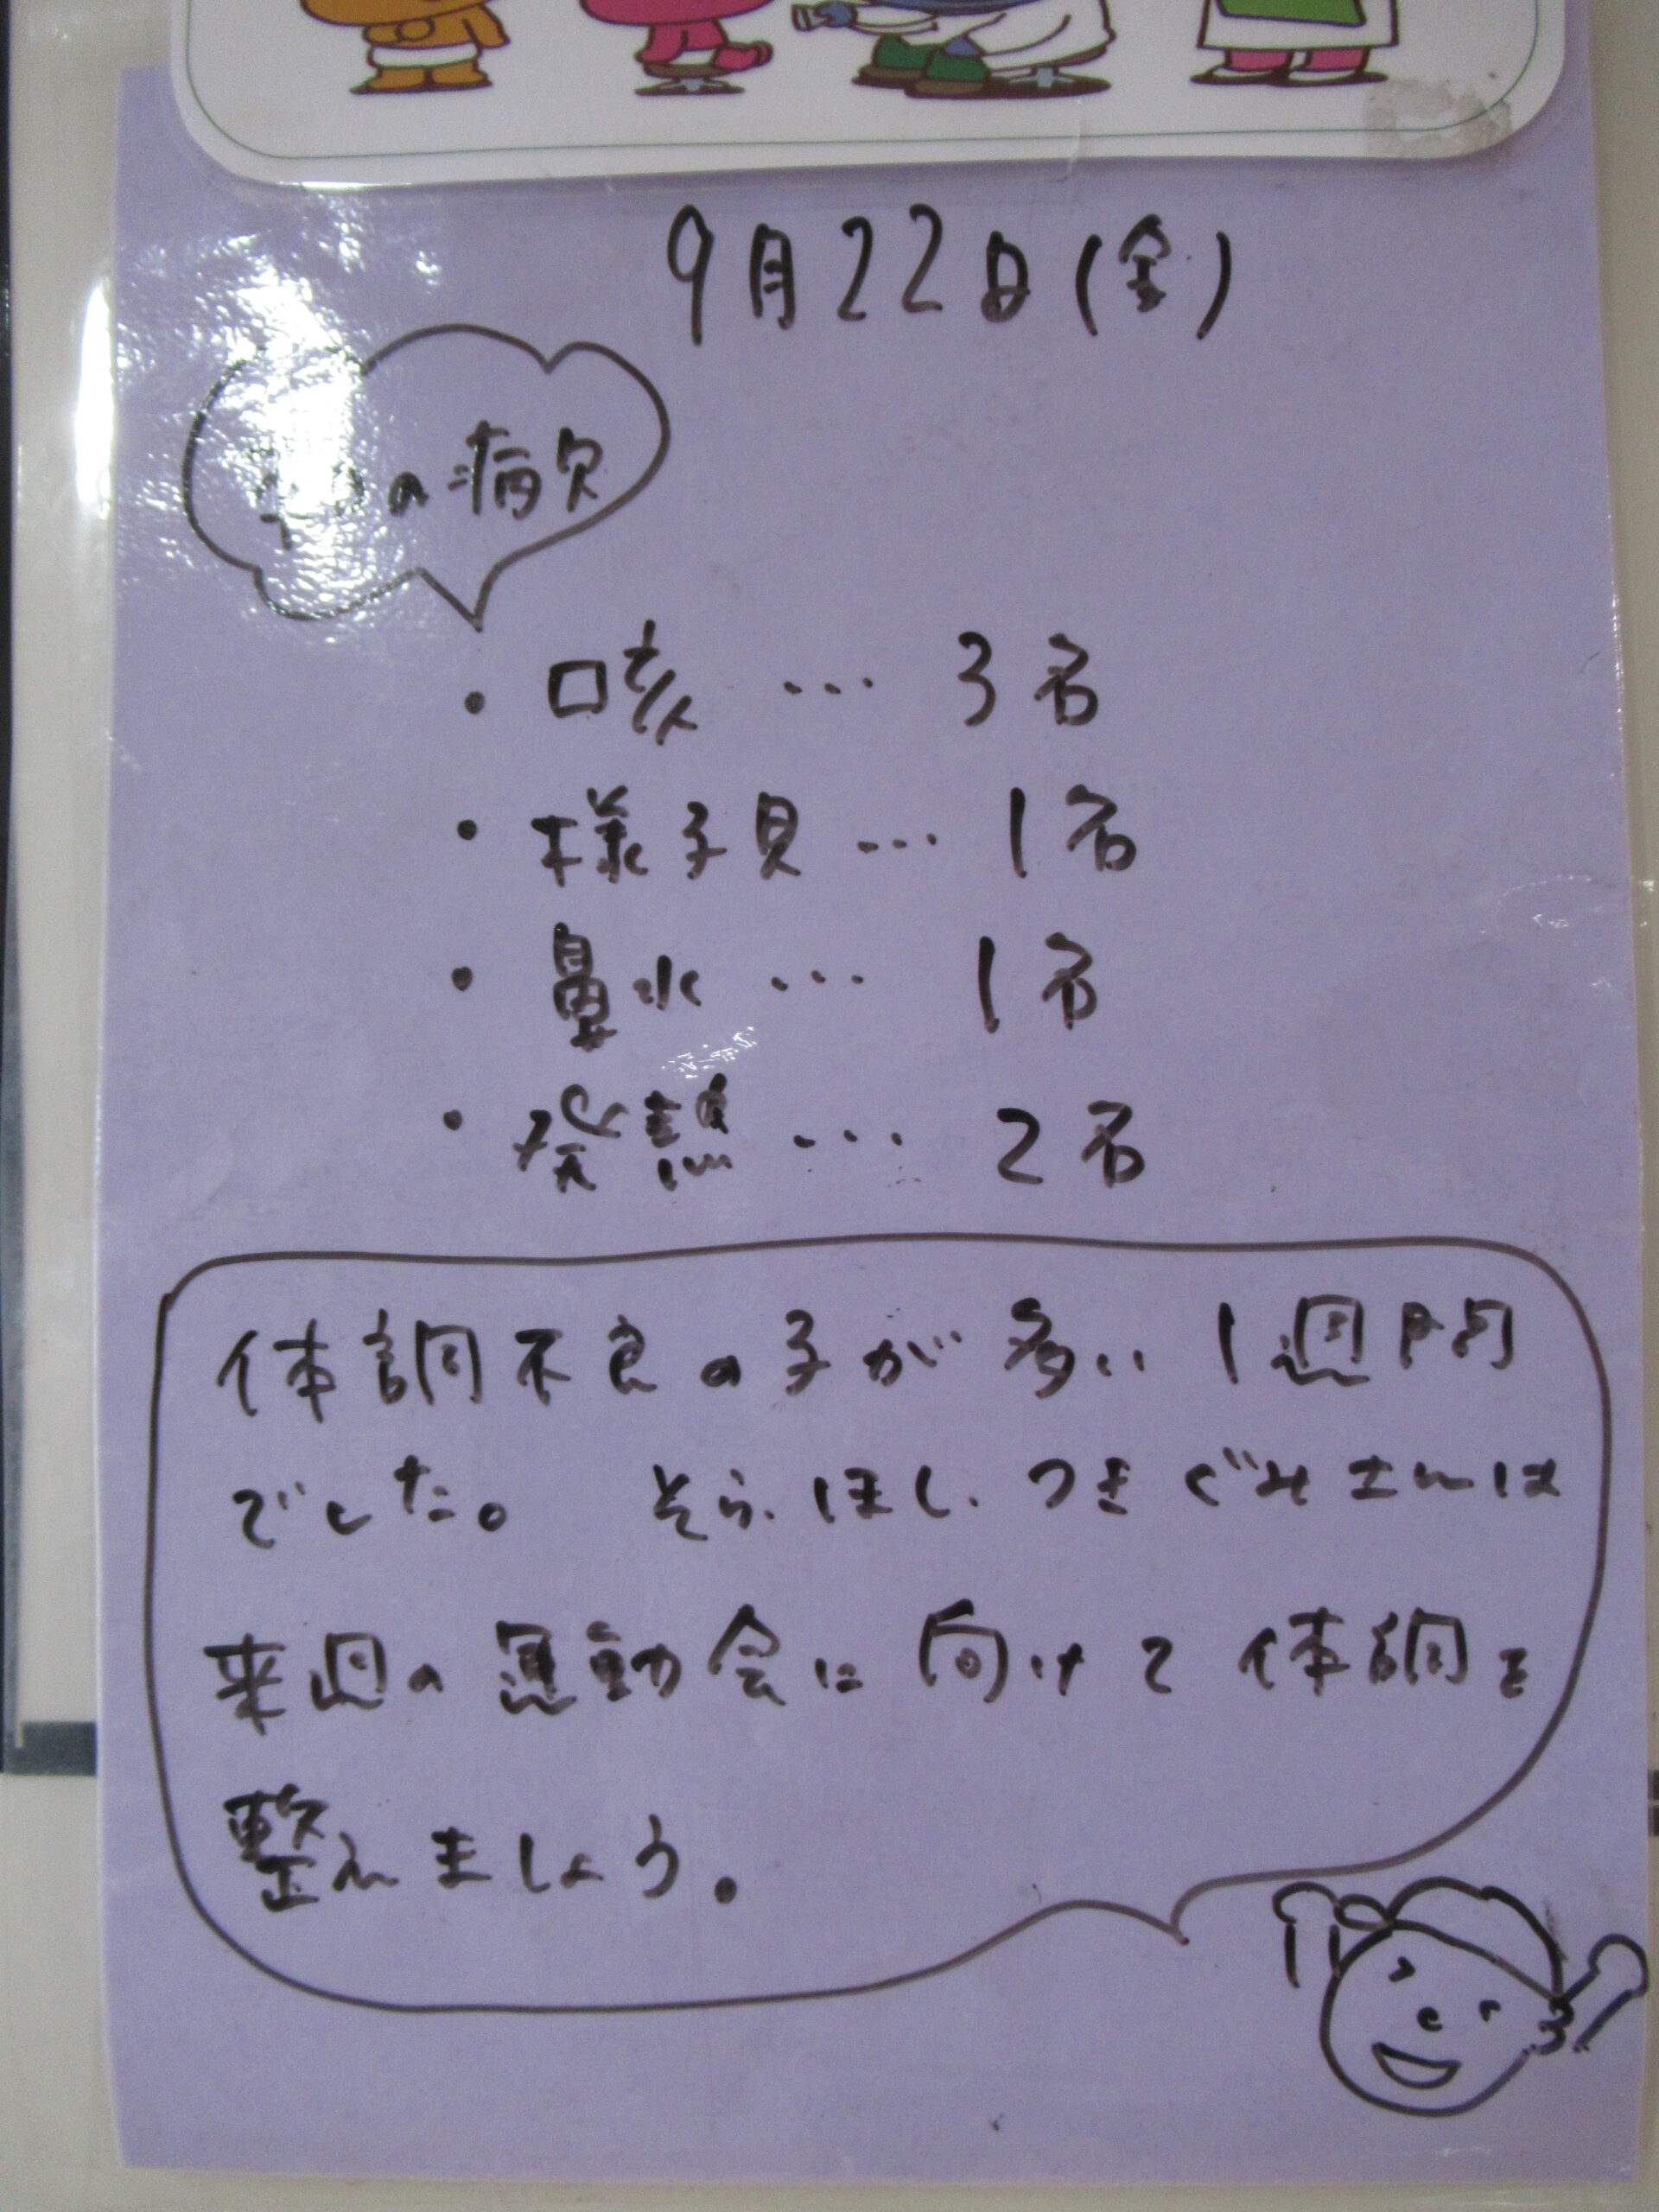 9月22日(金)
の病欠
・咳 … 3名
・様子見 … 1名
・鼻水 … 1名
・発熱 … 2名
体調不良の子が多い1週間
でした。 そら、ほし、つきぐみさんは
来週の運動会に向けて体調を
整えましょう。